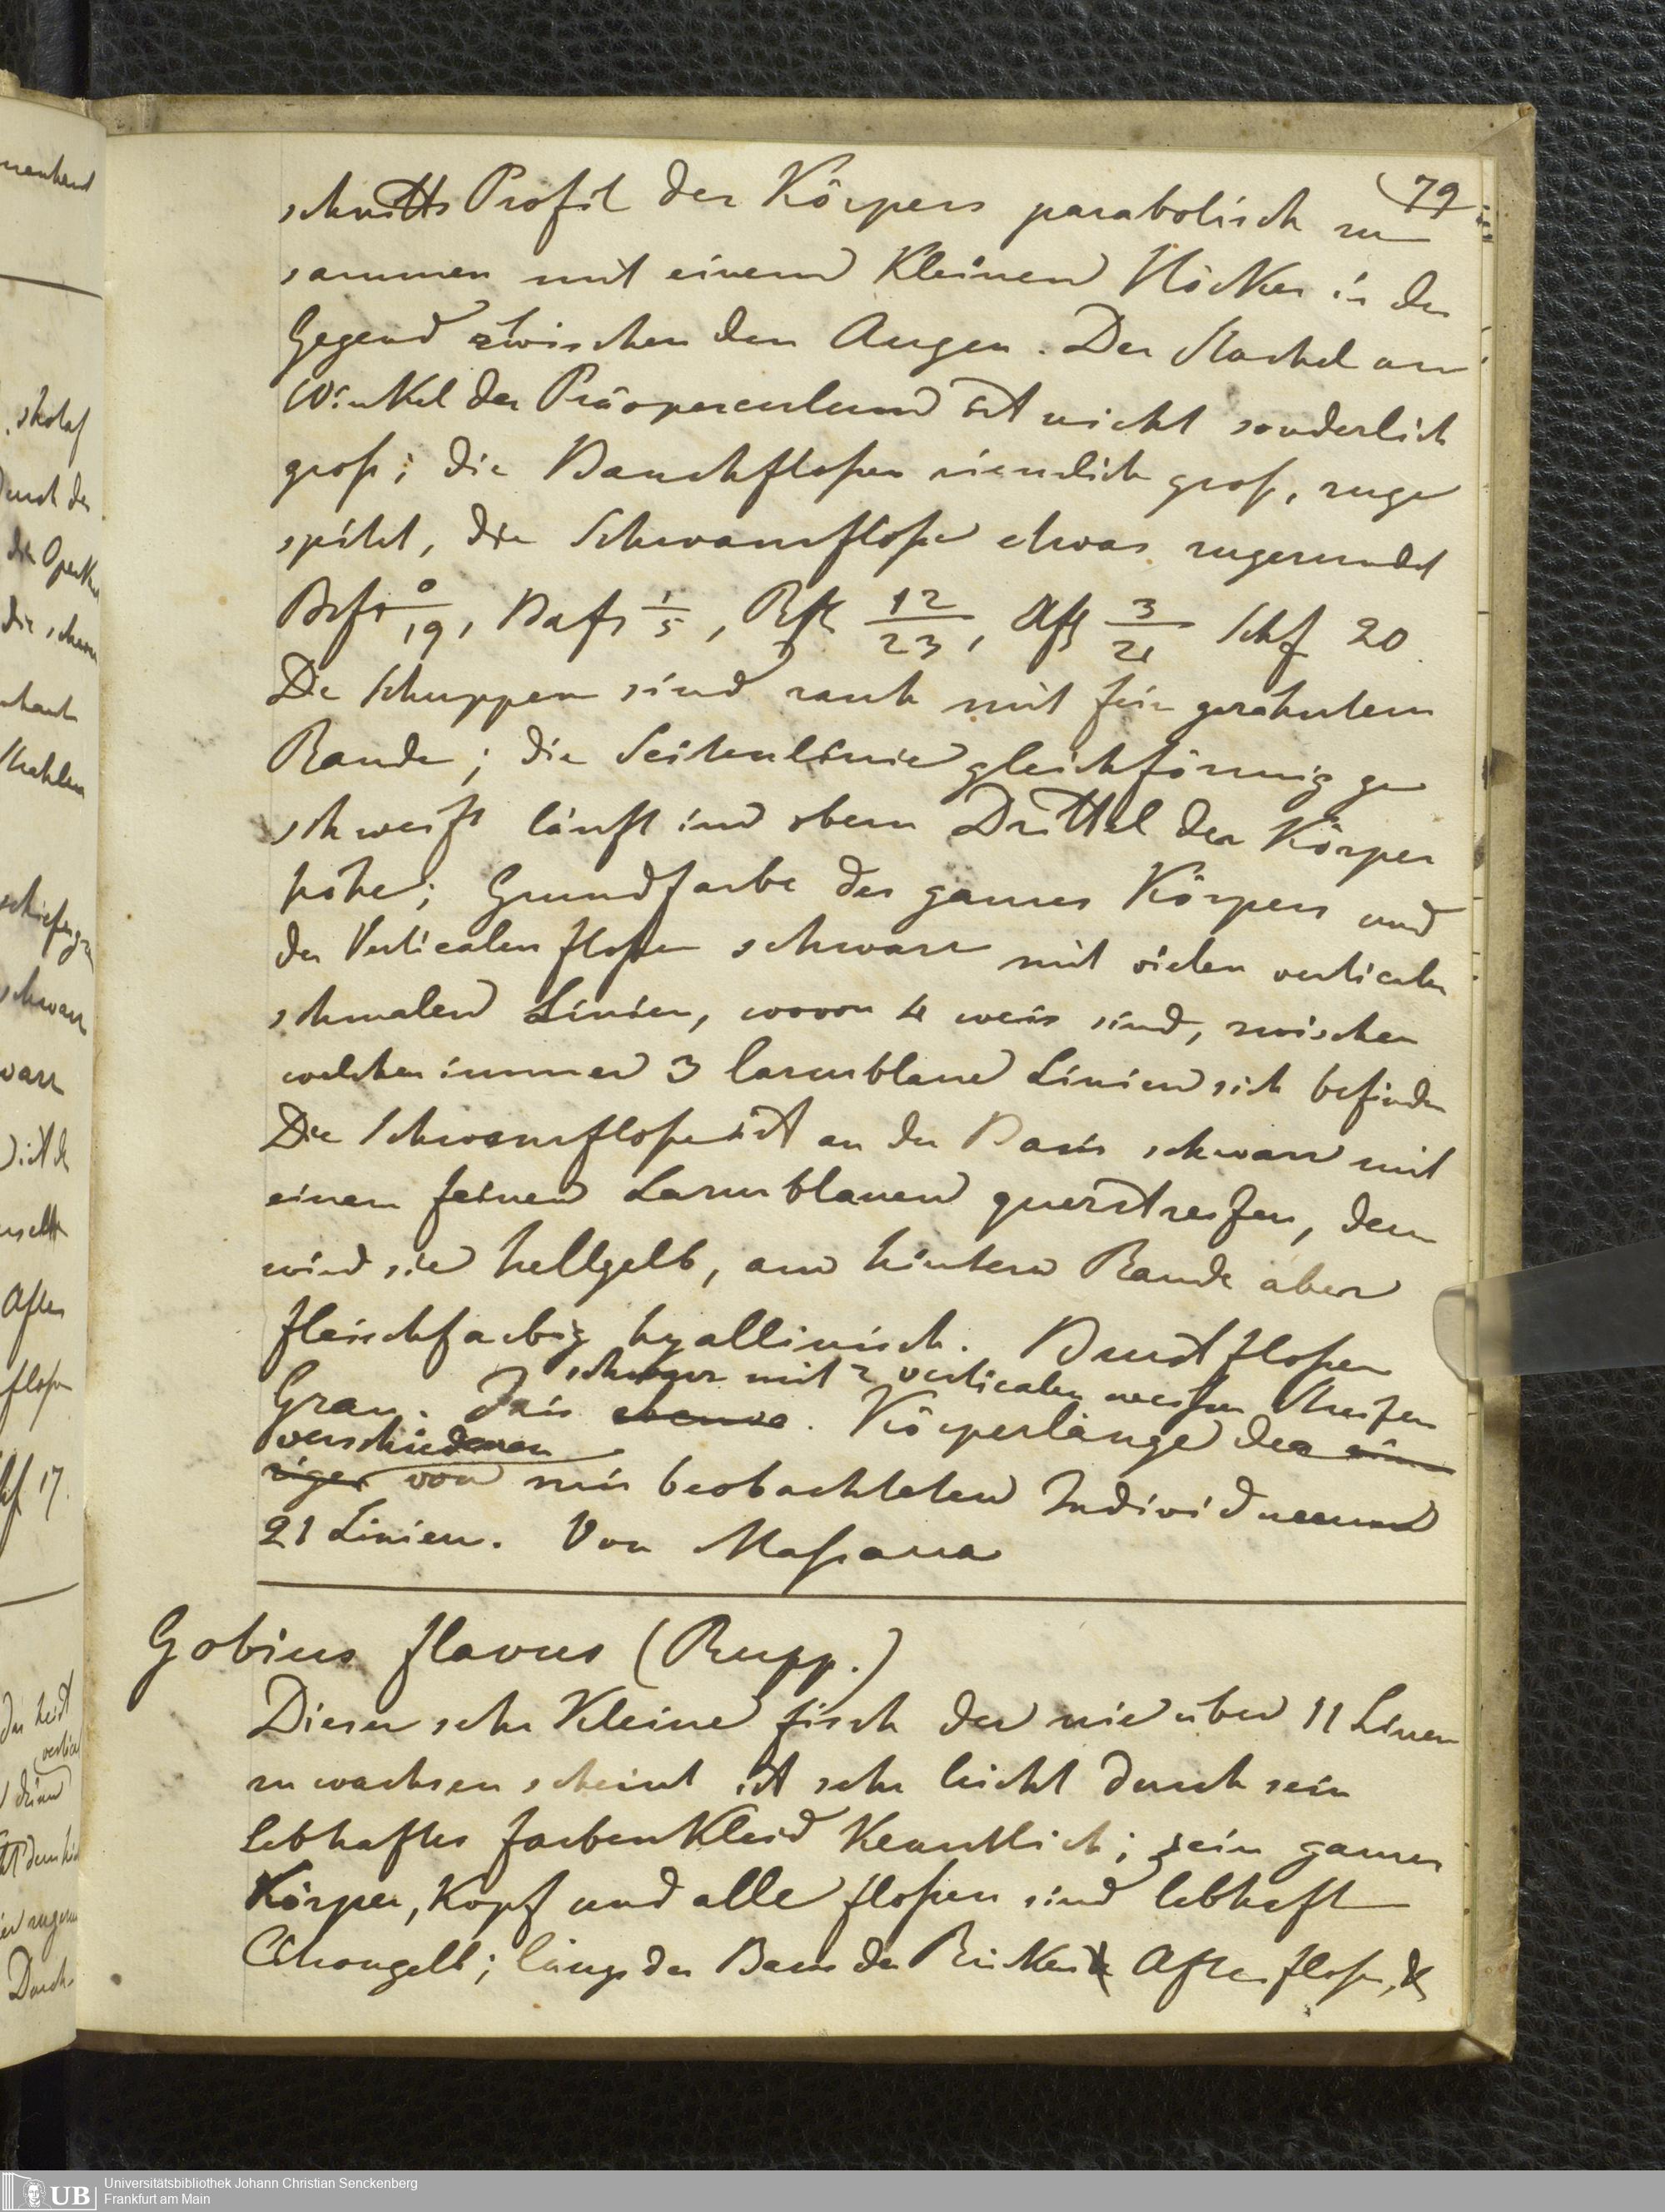 79
schnitts Profil des Körpers parabolisch zu
sammen mit einem kleinen Höcker in der
Gegend zwischen den Augen. Der Stachel am
Winkel des Präoperculum ist nicht sonderlich
groß; die Bauchfloßen ziemlich groß, zuge
spitzt, die Schwanzfloße etwas zugerundet
Brfl 0/19, Bafl 1/5, Rfl 12/23, Afl 3/21 Schf 20.
Die Schuppen sind rauh mit fein gezähntem
Rande; die Seitenlinie gleichförmig ge
schweift läuft im obern Drittel der Körper
höhe; Grundfarbe des ganzes Körpers und
der Verticalen floßen schwarz mit vielen verticalen
schmalen Linien, wovon 4 weis sind, zwischen
welchen immer 3 lazurblaue Linien sich befinden
Die Schwanzfloße ist an der Basis schwarz mit
einem feinen Lazurblauen querstreifen, dem
wird sie hellgelb, am hintern Rande aber
fleischfarbig hyallinisch. Brustfloßen
schwarz mit 2 verticalen weißen Streifen
Grau. Iris. Körperlänge der
verschiedenen
von mir beobachteten Individuen
21 Linien. Von Maßaua
Gobius flavus (Rupp.)
Dieser sehr kleine fisch der nie über 11 Linien
zu wachsen scheint ist sehr leicht durch sein
lebhaftes farbenkleid kenntlich; sein ganzer
Körper, Kopf und alle floßen sind lebhaft
Citrongelb; längs der Basis der Rücken & Afterfloße, &
nenhend
skolaf
durch der
die
die schwa
Strahlen
schwarz
ist de
After
floßen
17.
vertical
Durch
Universitätsbibliothek Johann Christian Senckenberg
Frankfurt am Main
UB